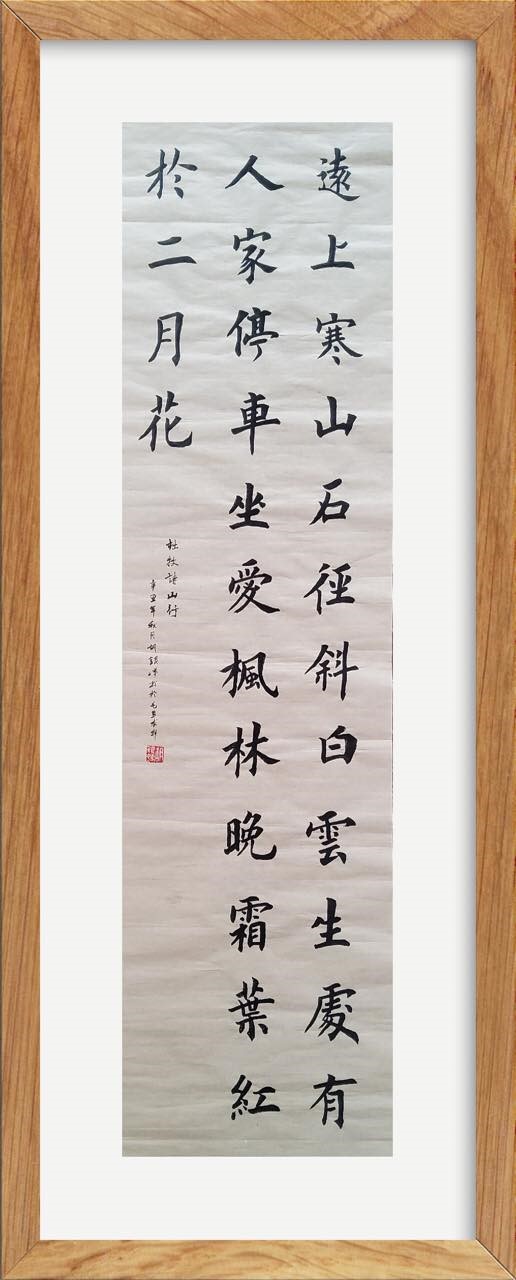 遠上寒山石徑斜白雲生處有
人家停車坐愛楓林晚霜葉紅
於二月花
杜牧詩山行
辛丑年秋月胡